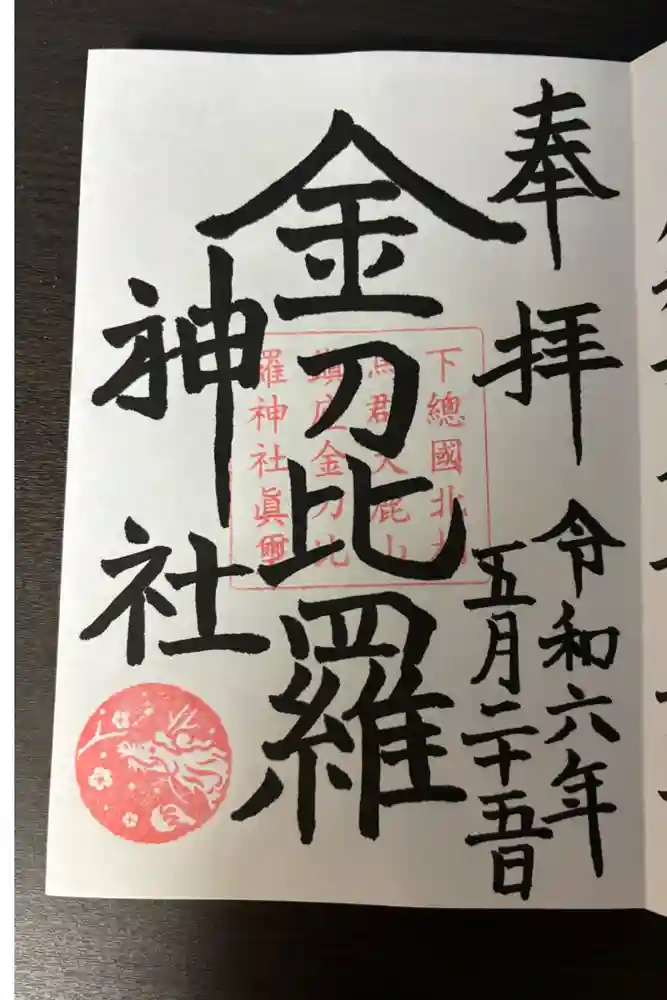 奉拝
令和六年
五月二十五日
金刀比羅
神社
下總國北相
馬郡大鹿山
鎭座金刀比
羅神社眞璽